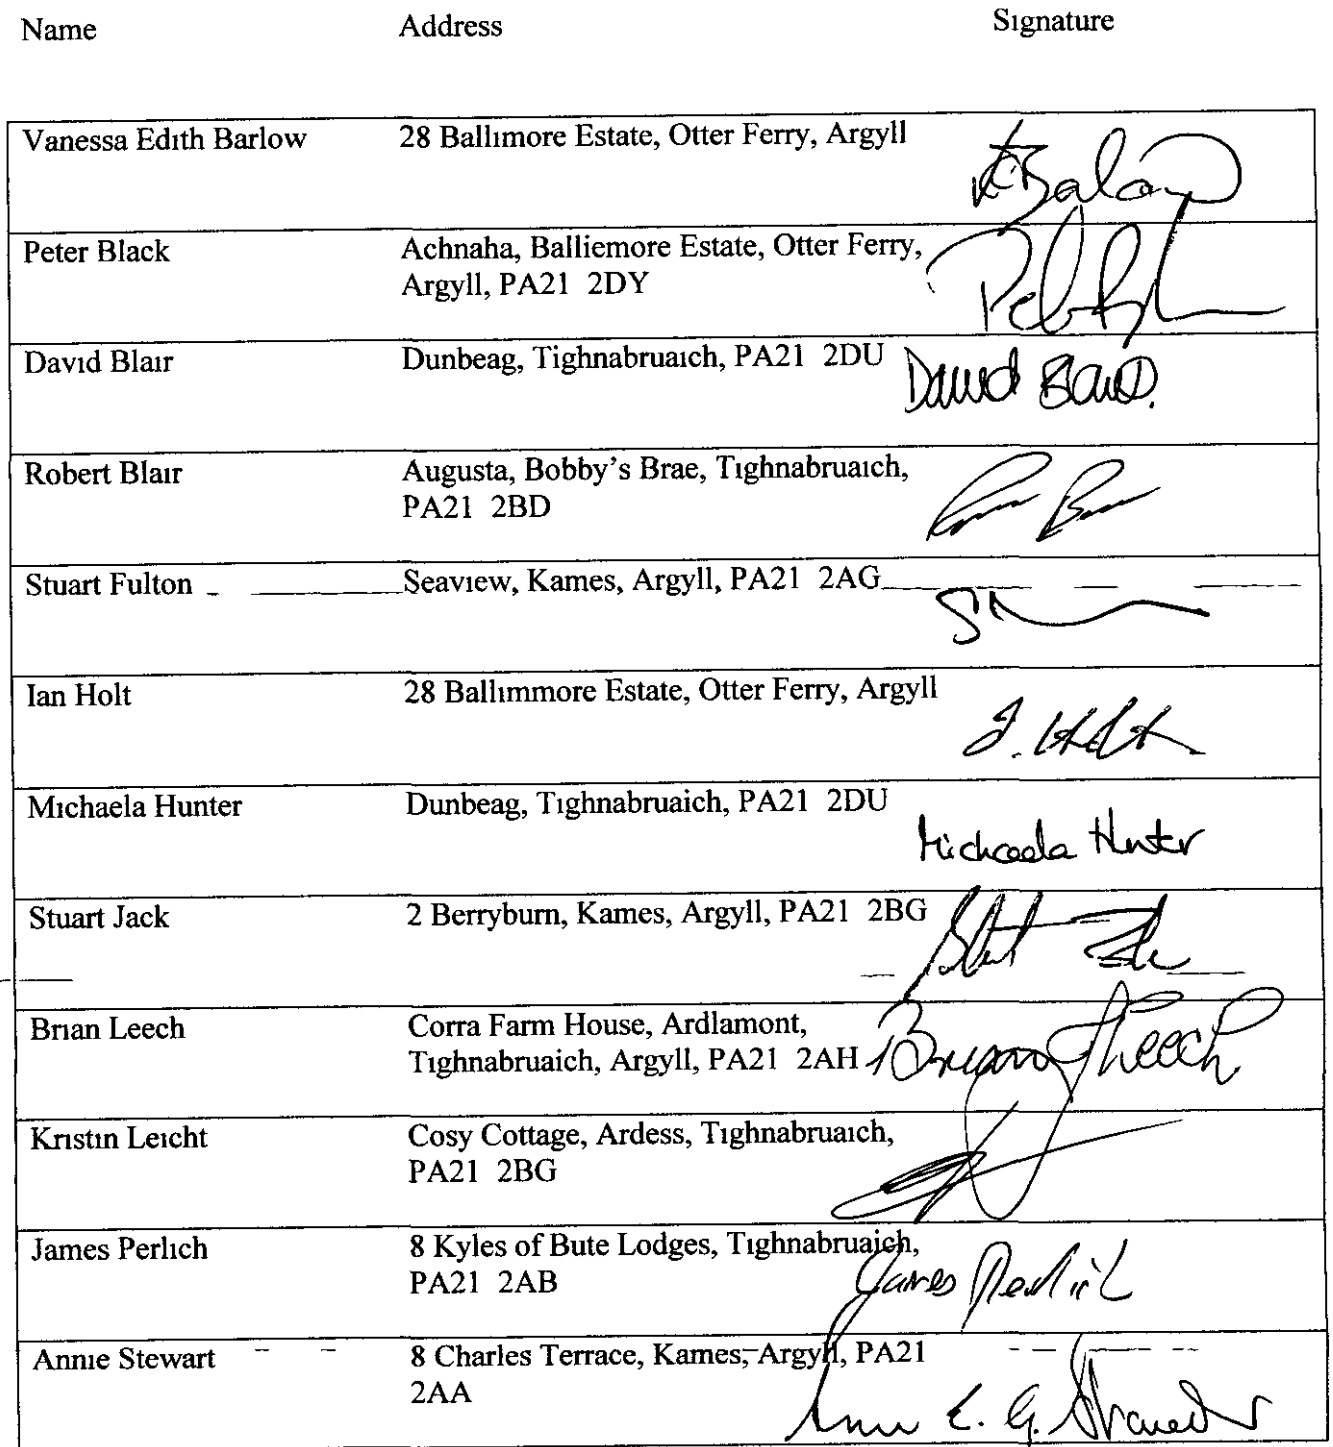 Name Address Signature
Vanessa Edith Barlow 28 Ballimore Estate, Otter Ferry, Argyll
Peter Black Achnaha, Balliemore Estate, Otter Ferry,
Argyll, PA21 2DY
David Blair Dunbeag, Tighnabruaich, PA21 2DU David Blair.
Robert Blair Augusta, Bobby's Brae, Tighnabruaich,
PA21 2BD
Stuart Fulton Seaview, Kames, Argyll, PA21 2AG
Ian Holt 28 Ballimmore Estate, Otter Ferry, Argyll
I. Holt
Michaela Hunter Dunbeag, Tighnabruaich, PA21 2DU
Michaela Hunter
Stuart Jack 2 Berryburn, Kames, Argyll, PA21 2BG
Brian Leech Corra Farm House, Ardlamont,
Tighnabruaich, Argyll, PA21 2AH Brian Leech
Kristin Leicht Cosy Cottage, Ardess, Tighnabruaich,
PA21 2BG
James Perlich 8 Kyles of Bute Lodges, Tighnabruaich,
PA21 2AB James Perlich
Annie Stewart 8 Charles Terrace, Kames, Argyll, PA21
2AA